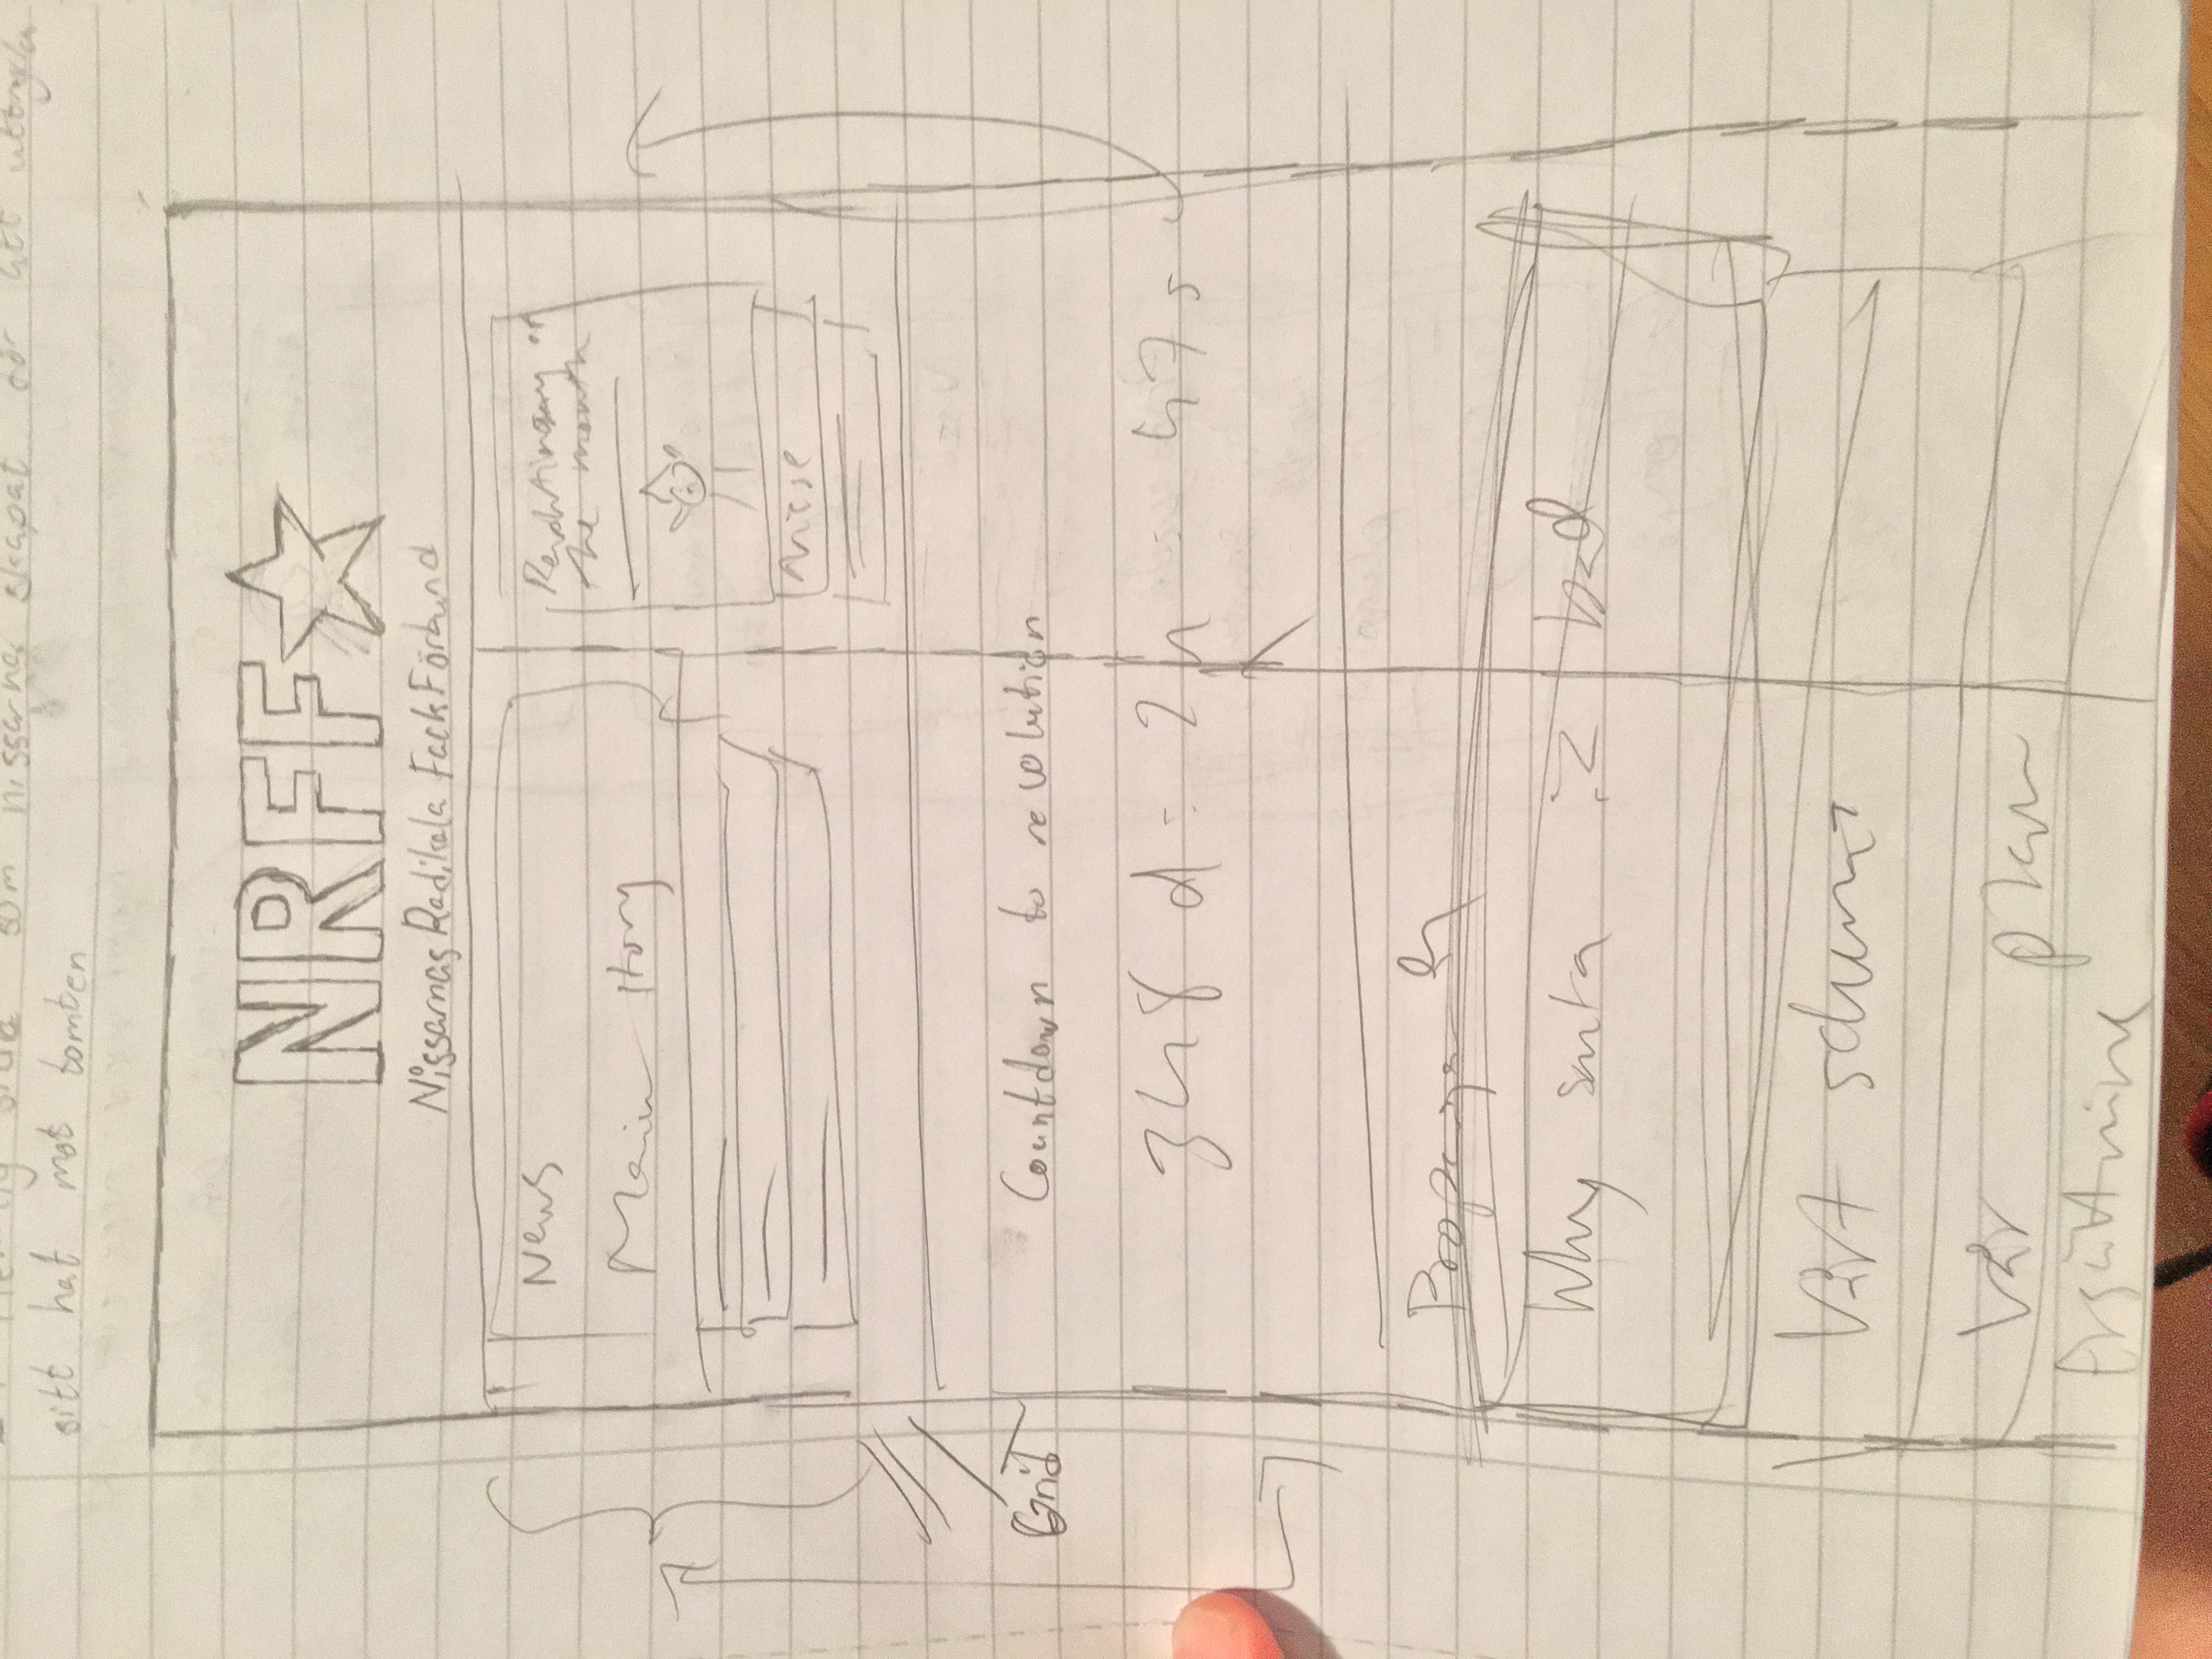 Hemlig sida som nissarna skapat för att uttrycka
sitt hat mot tomten
NRFF
Nissarnas Radikala FackFörbund
News
Main story
Revolutionary of
the month
Nisse
Grid
Countdown to revolution
348 d : 2 h : 47 s
Why santa iz bad
Vårt schema
Vår plan
Ersättning